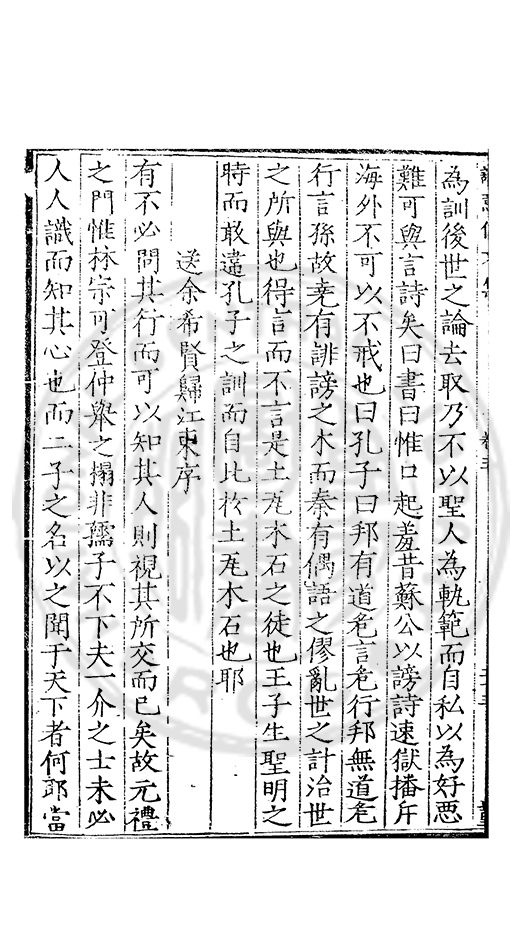 為訓後世之論去取乃不以聖人為軌範而自私以為好惡
難可與言詩矣曰書曰惟口起羞昔蘇公以謗詩速獄播斥
海外不可以不戒也曰孔子曰邦有道危言危行邦無道危
行言孫故堯有誹謗之木而秦有偶語之僇亂世之計治世
之所與也得言而不言是土瓦木石之徒也王子生聖明之
時而敢違孔子之訓而自比於土瓦木石也耶
送余希賢歸江東序
有不必問其行而可以知其人則視其所交而已矣故元禮
之門惟林宗可登仲舉之榻非孺子不下夫一介之士未必
人人識而知其心也而二子之名以之聞于天下者何耶當